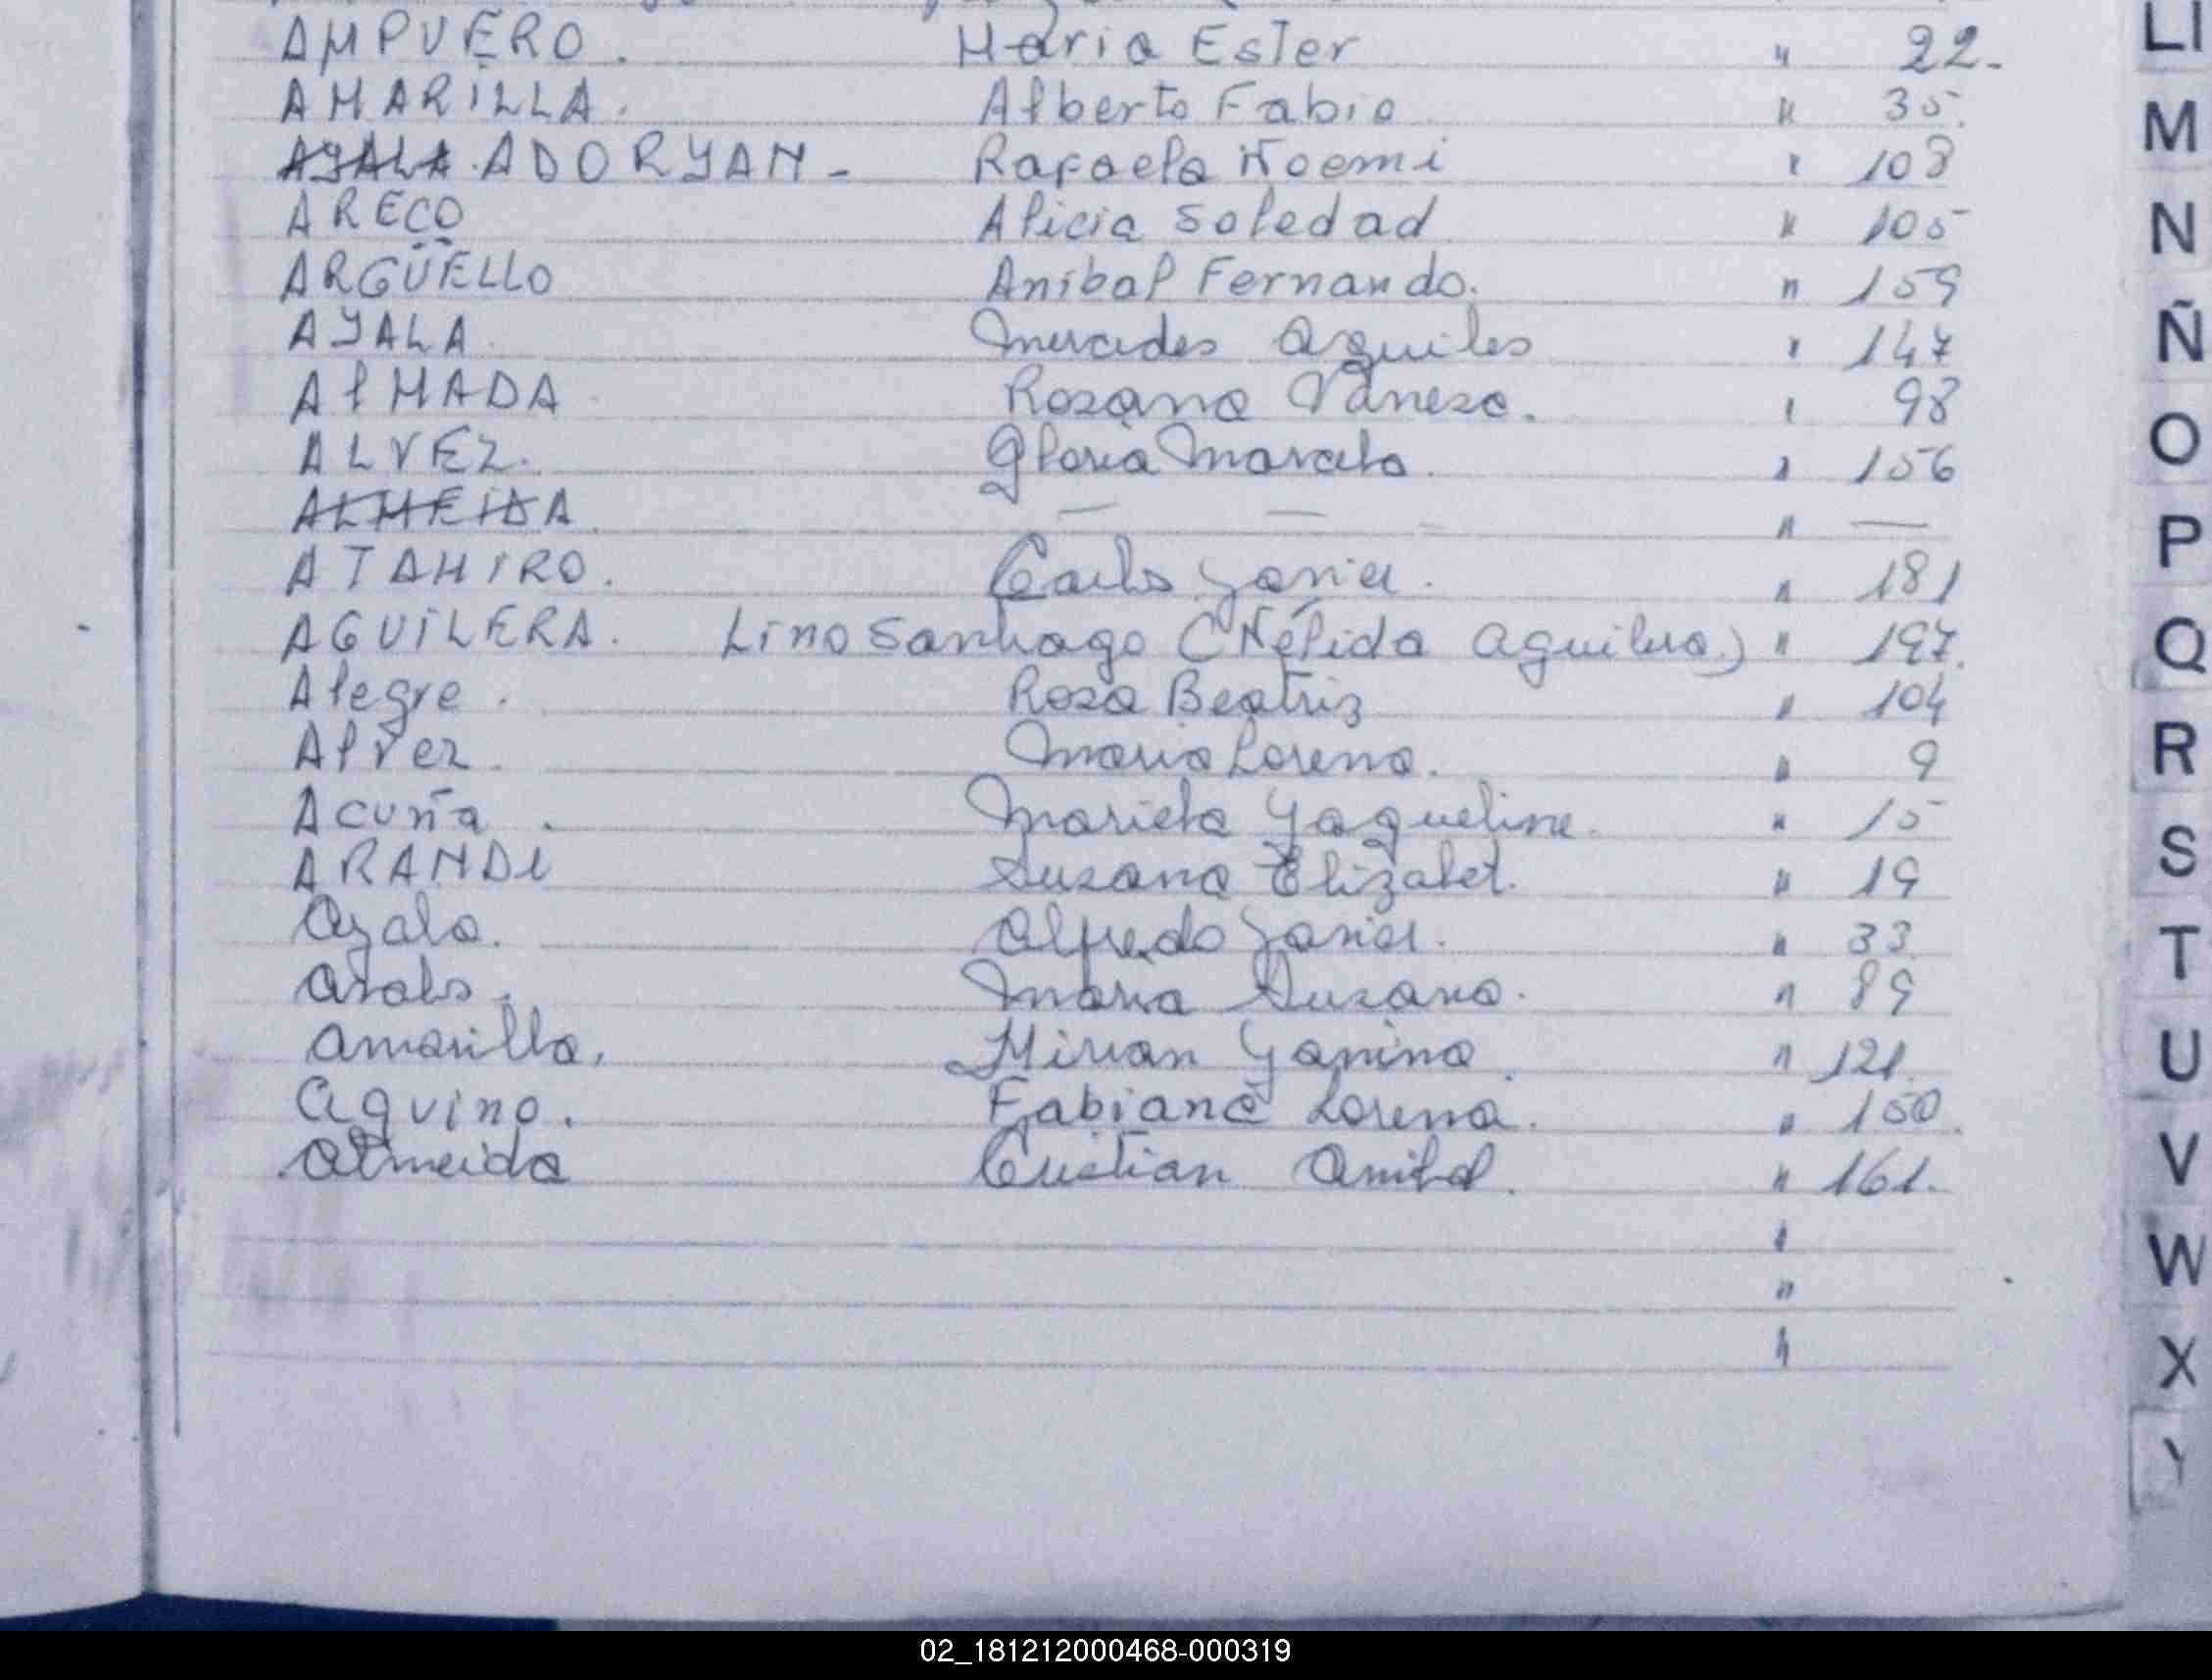 AMPUERO. Maria Ester " 22-
AMARILLA. Alberto Fabio " 35.
AYALA. ADORYAN - Rafaela Noemi " 108
ARECO Alicia Soledad " 105
ARGÜELLO Anibal Fernando. " 159
AYALA. Mercedes Aquiles " 147
AlMADA Rosana Vanesa. " 98
ALVEZ. Gloria Marcela. " 156
ALMEIDA. — — — " —
ATAMIRO. Carlos Javier. " 181
AGUILERA. Lino Santiago (Nélida Aguilera.) " 197.
Alegre. Rosa Beatriz " 104
Alvez. Maria Lorena. " 9
Acuña. Mariela Yaqueline. " 15
ARANDA Susana Elizabet. " 19
Ayala. Alfredo Javier. " 33
Maria Susana. " 89
Amarilla. Mirian Yanina. " 121.
Aquino. Fabiana Lorena. " 150.
Almeida Cristian Anibal. " 161.
"
"
"
LI
M
N
Ñ
O
P
Q
R
S
T
U
V
W
X
Y
02_181212000468-000319